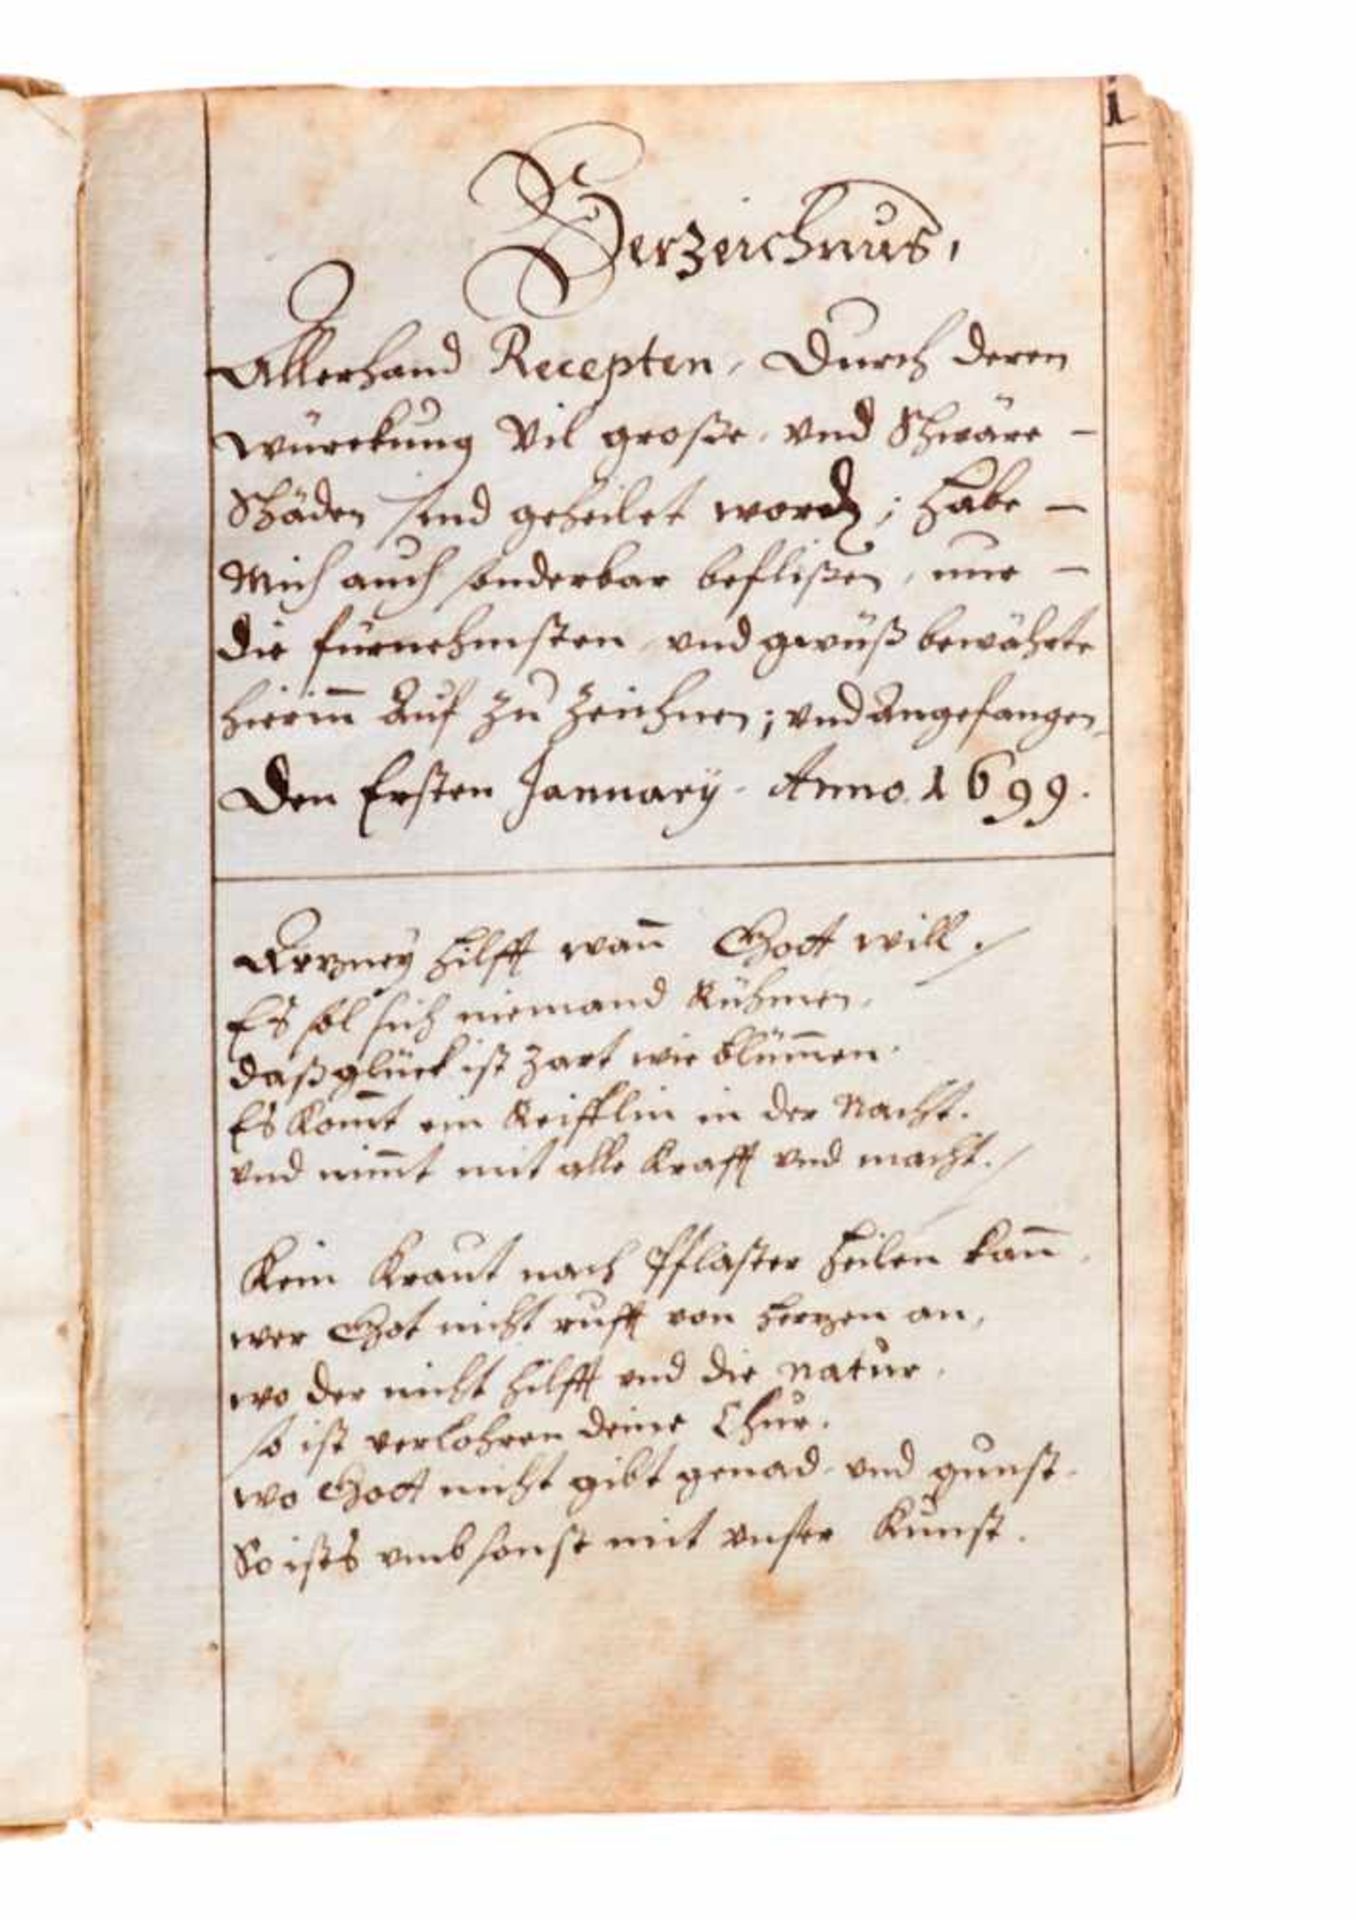 i
Verzeichnus,
Allerhand Recepten, Durch deren
würckung Vil große, und Schwäre –
Schäden sind geheilet worden; habe –
Mich auch sonderbar beflißen, nur –
die fürnehmsten und gwüß bewährte
hierin̄ Auf zu Zeichnen; und Angefangen,
Den Ersten Januarÿ. Anno. 1699.
Artzneÿ hilfft wan̄ Gott will. /
Es sol sich niemand Rühmen,
daß glück ist zart wie blüm̄en.
Es Kom̄t ein Reifflin in der Nacht.
und nim̄t mit alle Krafft und macht. /
Kein Kraut nach Pflaster heilen kan̄.
wer Got nicht rufft von hertzen an,
wo der nicht hilfft und die natur,
so ist verlohren deine Chur.
wo Gott nicht gibt genad und gunst.
So ists umbsonst mit unser Kunst.